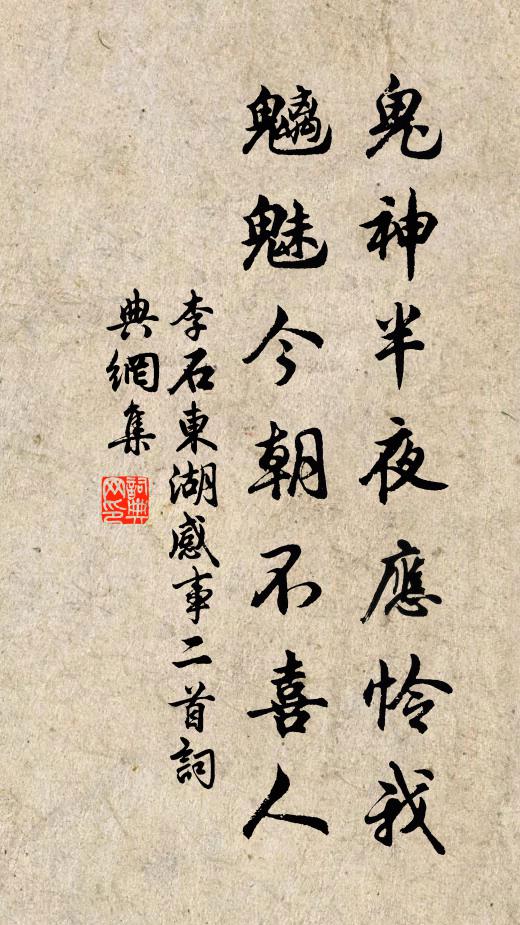 鬼神半夜應怜我
魑魅今朝不喜人
李石東湖感事二首詞
典網集
詞典
网印